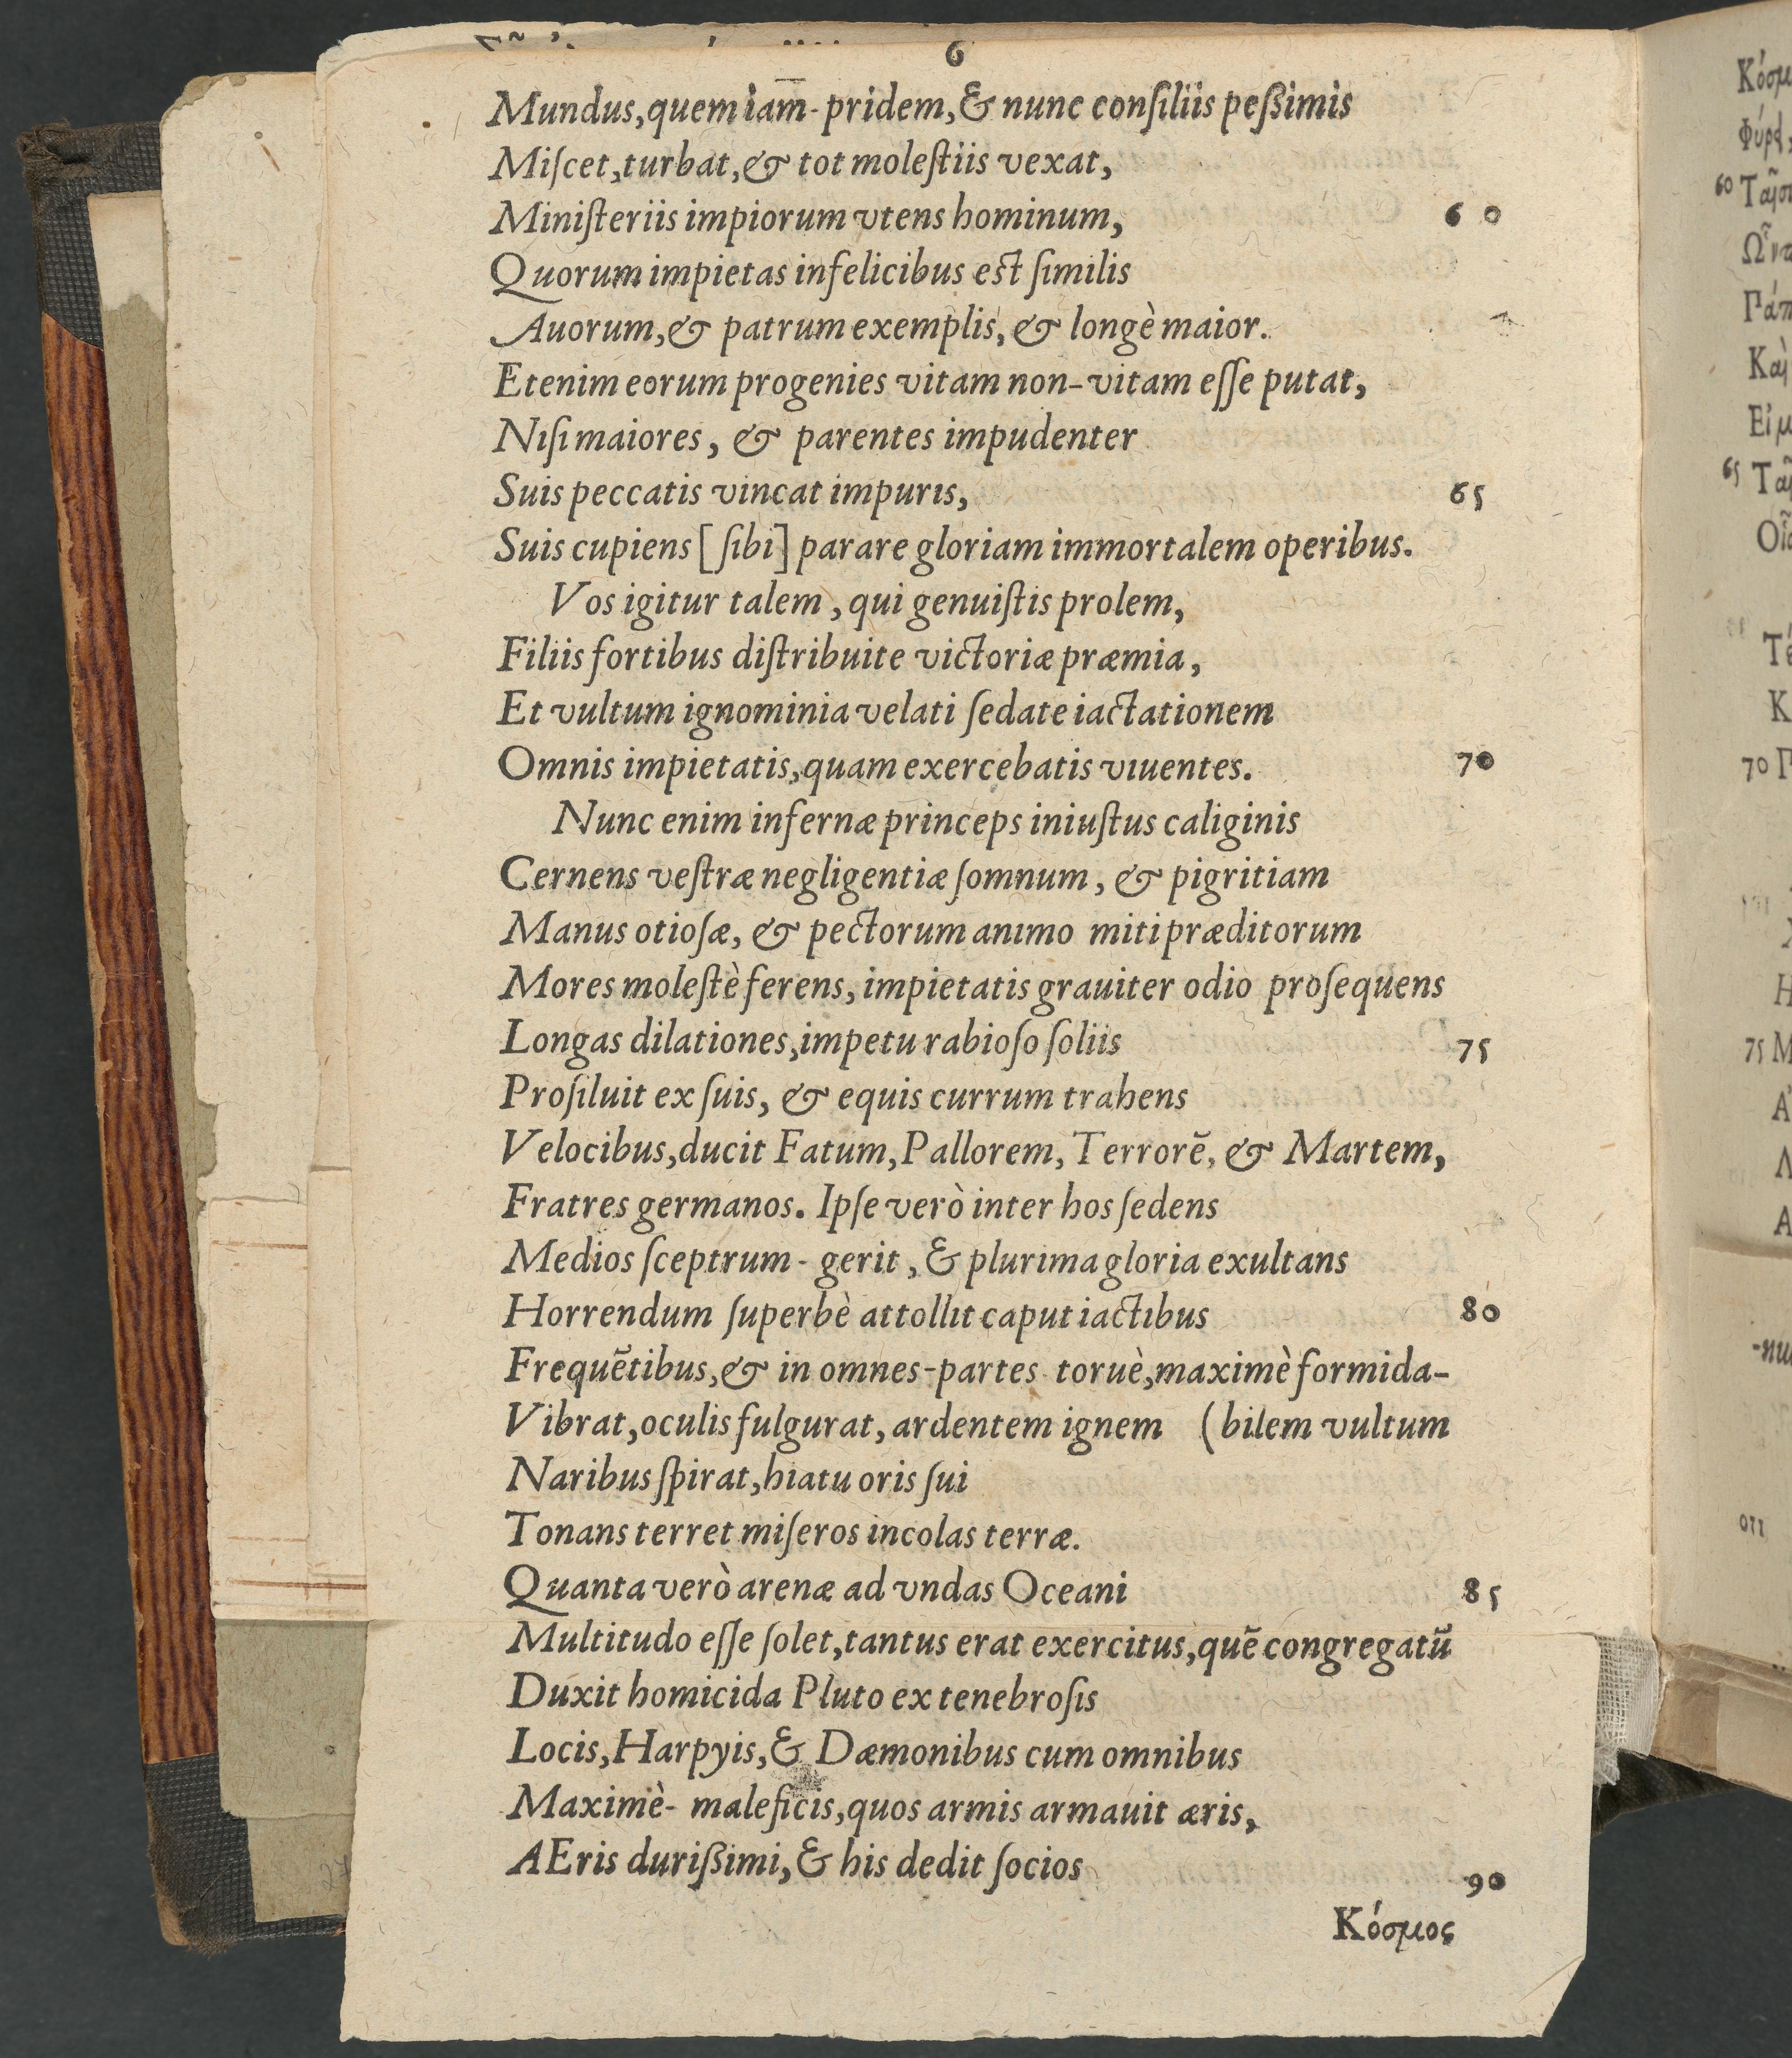 6
Mundus, quem iam-pridem, & nunc conſiliis peßimis
Miſcet, turbat, & tot moleſtiis vexat,
Miniſteriis impiorum vtens hominum, 60
Quorum impietas infelicibus est ſimilis
Auorum, & patrum exemplis, & longè maior.
Etenim eorum progenies vitam non-vitam eſſe putat,
Niſi maiores, & parentes impudenter
Suis peccatis vincat impuris, 65
Suis cupiens [ſibi] parare gloriam immortalem operibus.
Vos igitur talem, qui genuiſtis prolem,
Filiis fortibus diſtribuite victoriæ præmia,
Et vultum ignominia velati ſedate iactationem
Omnis impietatis, quam exercebatis viuentes. 70
Nunc enim infernæ princeps iniuſtus caliginis
Cernens veſtræ negligentiæ ſomnum, & pigritiam
Manus otioſæ, & pectorum animo miti præditorum
Mores moleſtè ferens, impietatis grauiter odio proſequens
Longas dilationes, impetu rabioſo ſoliis 75
Proſiluit ex ſuis, & equis currum trahens
Velocibus, ducit Fatum, Pallorem, Terrorē, & Martem,
Fratres germanos. Ipſe verò inter hos ſedens
Medios ſceptrum-gerit, & plurima gloria exultans
Horrendum ſuperbè attollit caput iactibus 80
Frequētibus, & in omnes-partes toruè, maximè formida-
Vibrat, oculis fulgurat, ardentem ignem (bilem vultum
Naribus ſpirat, hiatu oris ſui
Tonans terret miſeros incolas terræ.
Quanta verò arenæ ad vndas Oceani 85
Multitudo eſſe ſolet, tantus erat exercitus, quē congregatū
Duxit homicida Pluto ex tenebroſis
Locis, Harpyis, & Dæmonibus cum omnibus
Maximè-maleficis, quos armis armauit æris,
AEris durißimi, & his dedit ſocios 90
Κόσμος
60
65
70
75